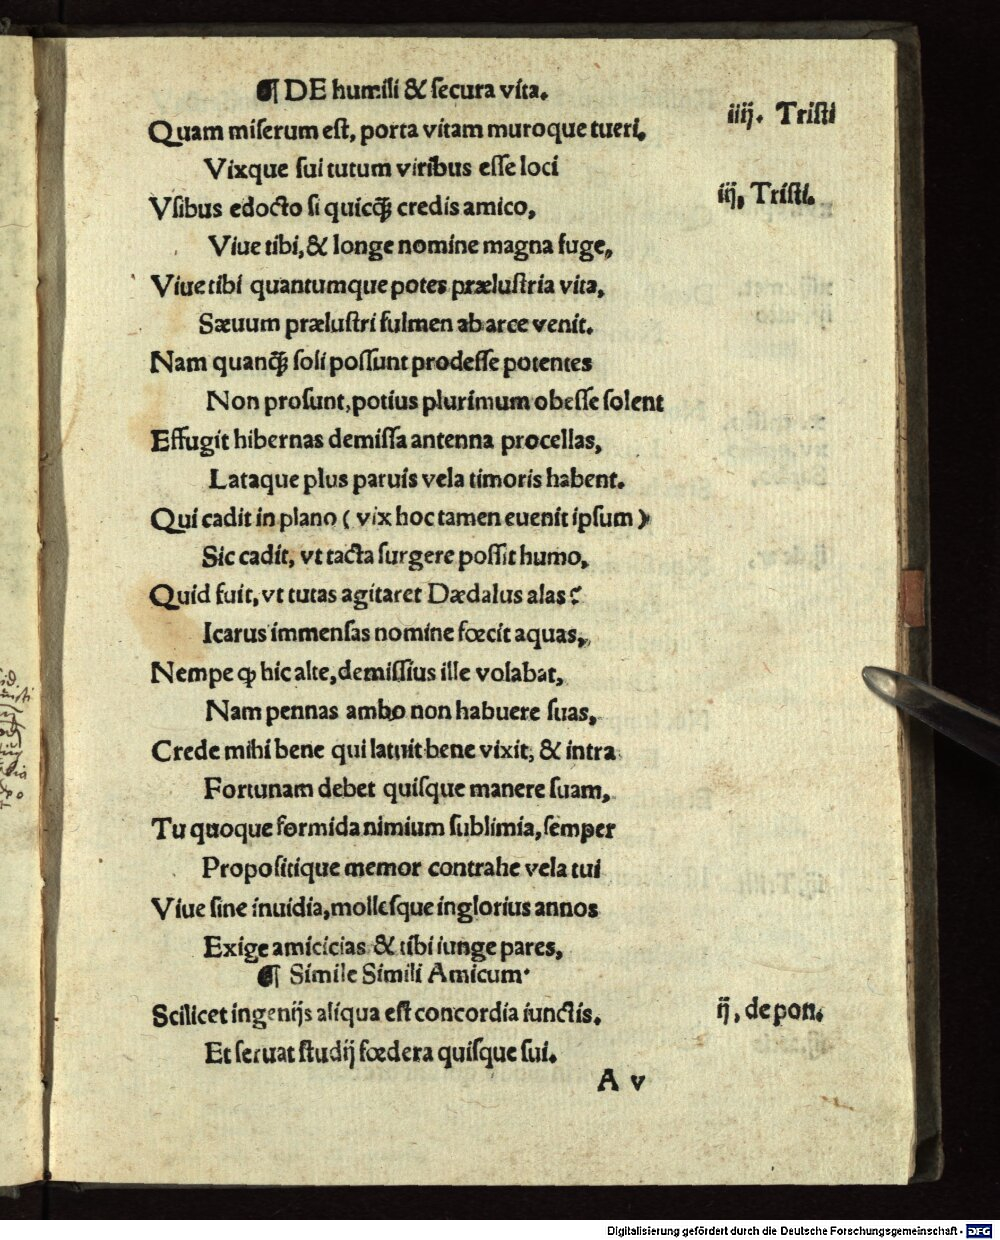 ¶ DE humili & ſecura vita.
Quam miſerum eſt, porta vitam muroque tueri. iiij. Triſti
Vixque ſui tutum viribus eſſe loci
Vſibus edocto ſi quicq̃ credis amico, iij, Triſti.
Viue tibi, & longe nomine magna fuge,
Viue tibi quantumque potes præluſtria vita,
Sæuum præluſtri fulmen ab arce venit.
Nam quanq̃ ſoli poſſunt prodeſſe potentes
Non proſunt, potius plurimum obeſſe ſolent
Effugit hibernas demiſſa antenna procellas,
Lataque plus paruis vela timoris habent.
Qui cadit in plano ( vix hoc tamen euenit ipſum )
Sic cadit, vt tacta ſurgere poſſit humo,
Quid fuit, vt tutas agitaret Dædalus alas?
Icarus immenſas nomine fœcit aquas,
Nempe ꝙ hic alte, demiſſius ille volabat,
Nam pennas ambo non habuere ſuas,
Crede mihi bene qui latuit bene vixit, & intra
Fortunam debet quiſque manere ſuam,
Tu quoque formida nimium ſublimia, ſemper
Propoſitique memor contrahe vela tui
Viue ſine inuidia, molleſque inglorius annos
Exige amicicias & tibi iunge pares,
¶ Simile Simili Amicum.
Scilicet ingenijs aliqua eſt concordia iunctis. ij, de pon.
Et ſeruat ſtudij fœdera quiſque ſui.
A v
Digitalisierung gefördert durch die Deutsche Forschungsgemeinschaft - DFG